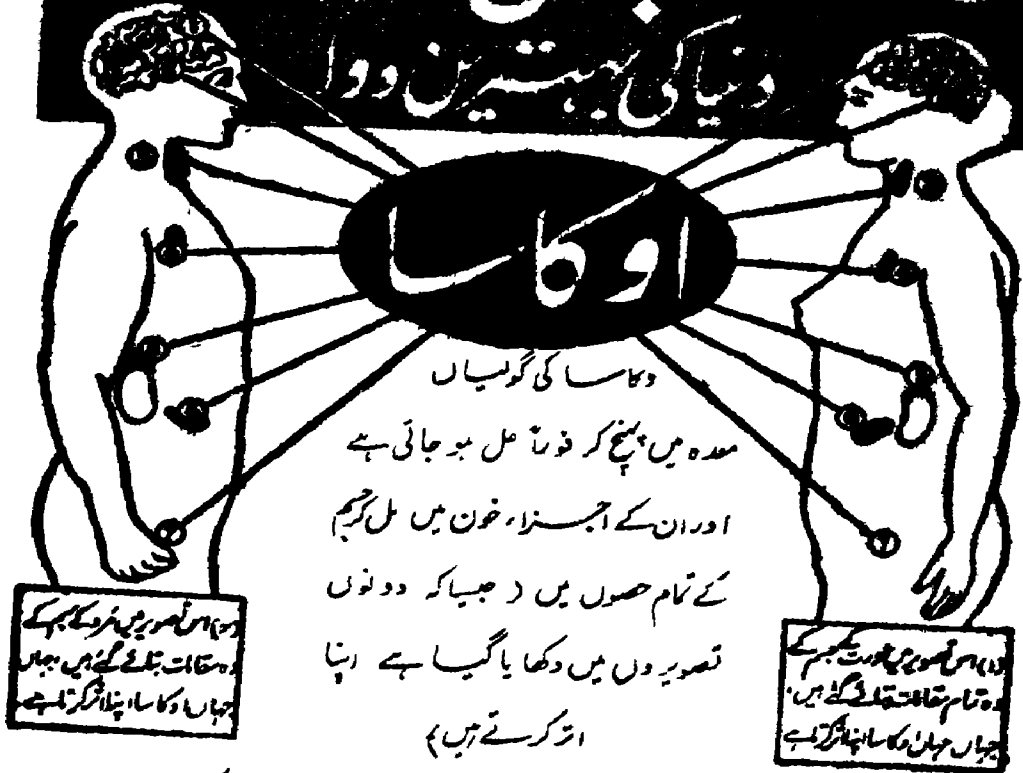 دنیا کی بہترین دوا
اوکاسا
وکاسا کی گولیاں
معدہ میں پہنچ کر فوراً حل ہو جاتی ہے
اور ان کے اجزاء خون میں مل کر جسم
کے تمام حصوں میں ( جیسا کہ دونوں
تصویروں میں دکھایا گیا ہے اپنا
اثر کرتے ہیں)
(۱) اس تصویر میں عورت کے جسم کے
وہ تمام مقامات بتائے گئے ہیں
جہاں جہاں اوکاسا اپنا اثر کرتا ہے
(۲) اس تصویر میں مرد کے جسم کے
وہ مقامات بتائے گئے ہیں جہاں
جہاں اوکاسا اپنا اثر کرتا ہے